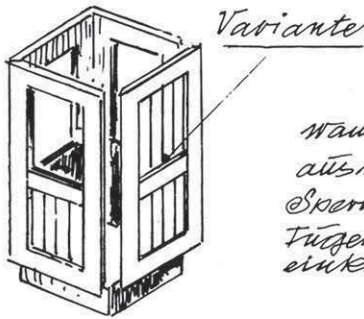 Variante
Wan
aus
Sperr
Fugen
eink